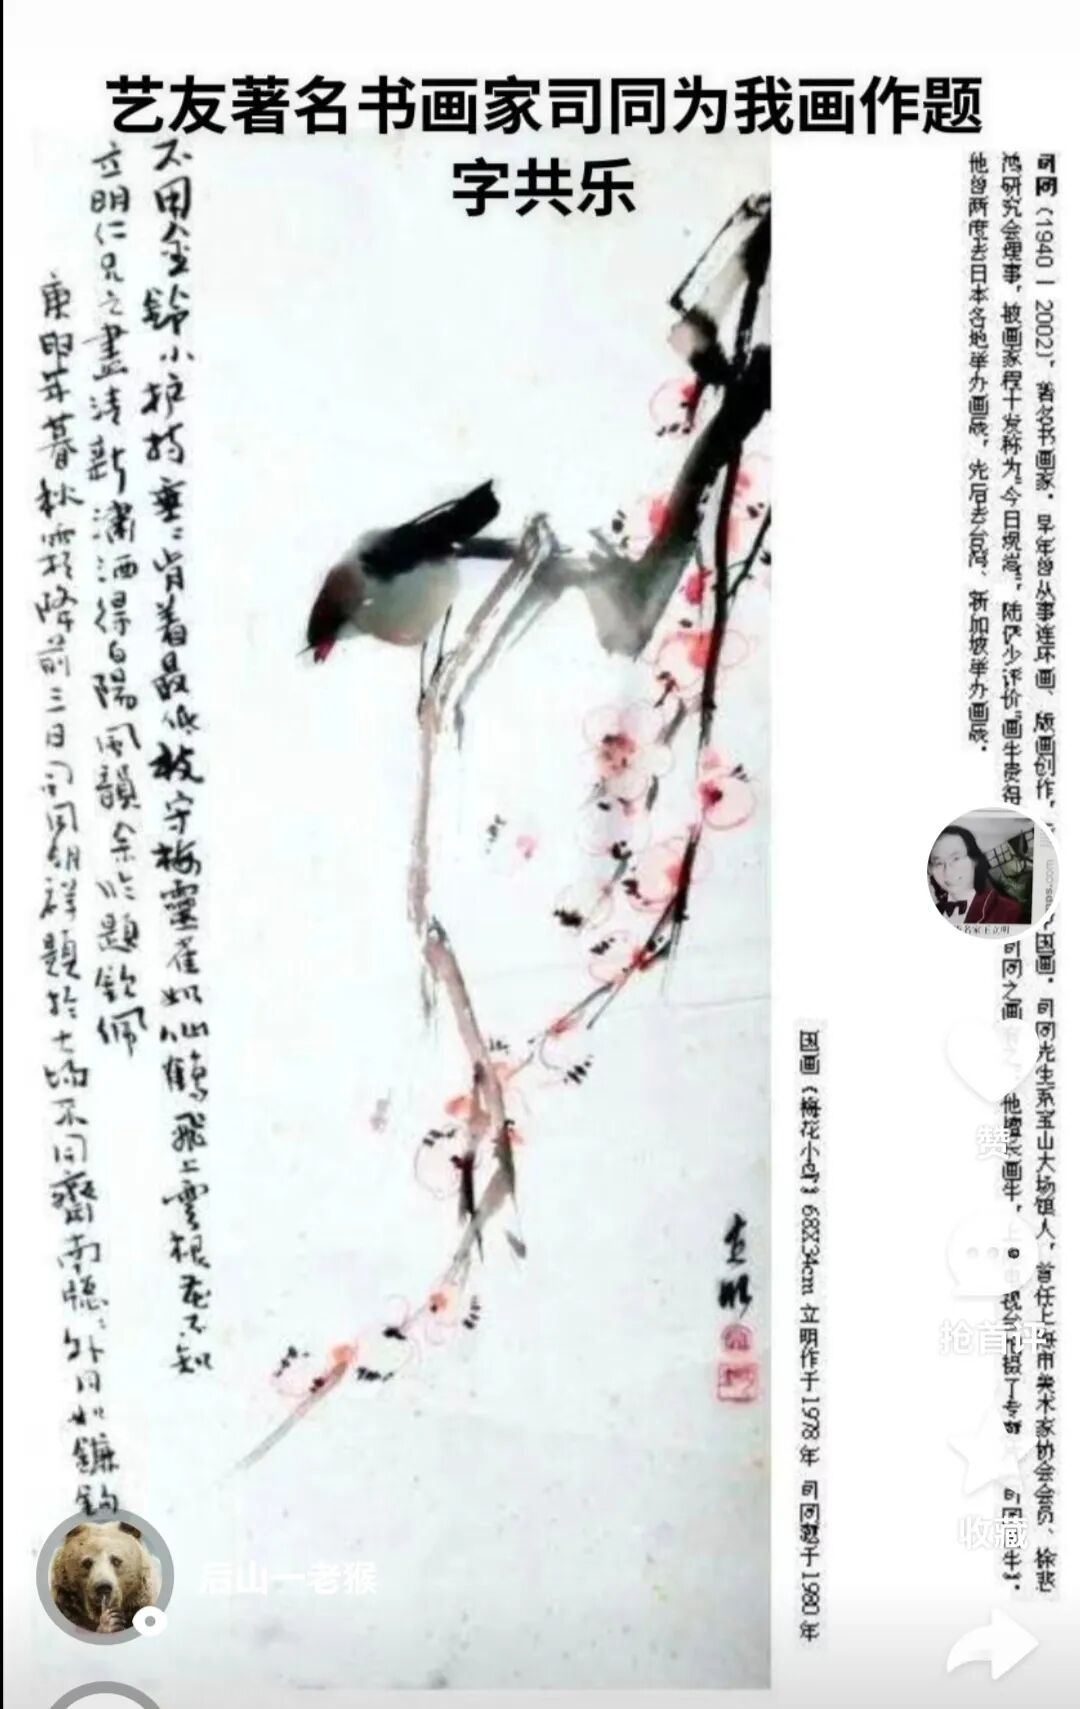 艺友著名书画家司同为我画作题
字共乐
司同（1940—2002），著名书画家。早年曾从事连环画、版画创作，
国画。司同先生系宝山大场镇人，首任上海市美术家协会会员、徐悲
鸿研究会理事，被画家程十发称为“今日现嵩”，陆俨少评价“画牛贵得
司同之画
他擅长画牛，上
他曾两度去日本各地举办画展，先后去台湾、新加坡举办画展。
国画《梅花小鸟》68X34cm 立明作于1978年 司同题于1980年
立明
不用金铃小护持垂垂肯着最低枝守梅灵雀如仙鹤飞上雲根花不知
立明仁兄之畫清新潇洒得白陽风韻余吟題钦佩
庚申年暮秋霜降前三日司同胡祥題於大場不同齋南牕外月如鐮鈎
后山一老猴
赞
抢首评
收藏